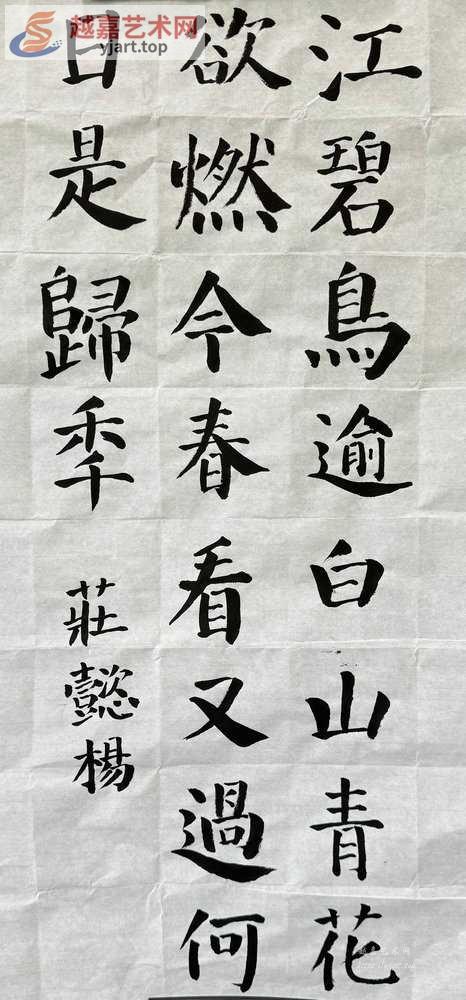 越嘉艺术网
yjart.top
江碧鳥逾白山青花
欲燃今春看又過何
日是歸秊
莊懿楊